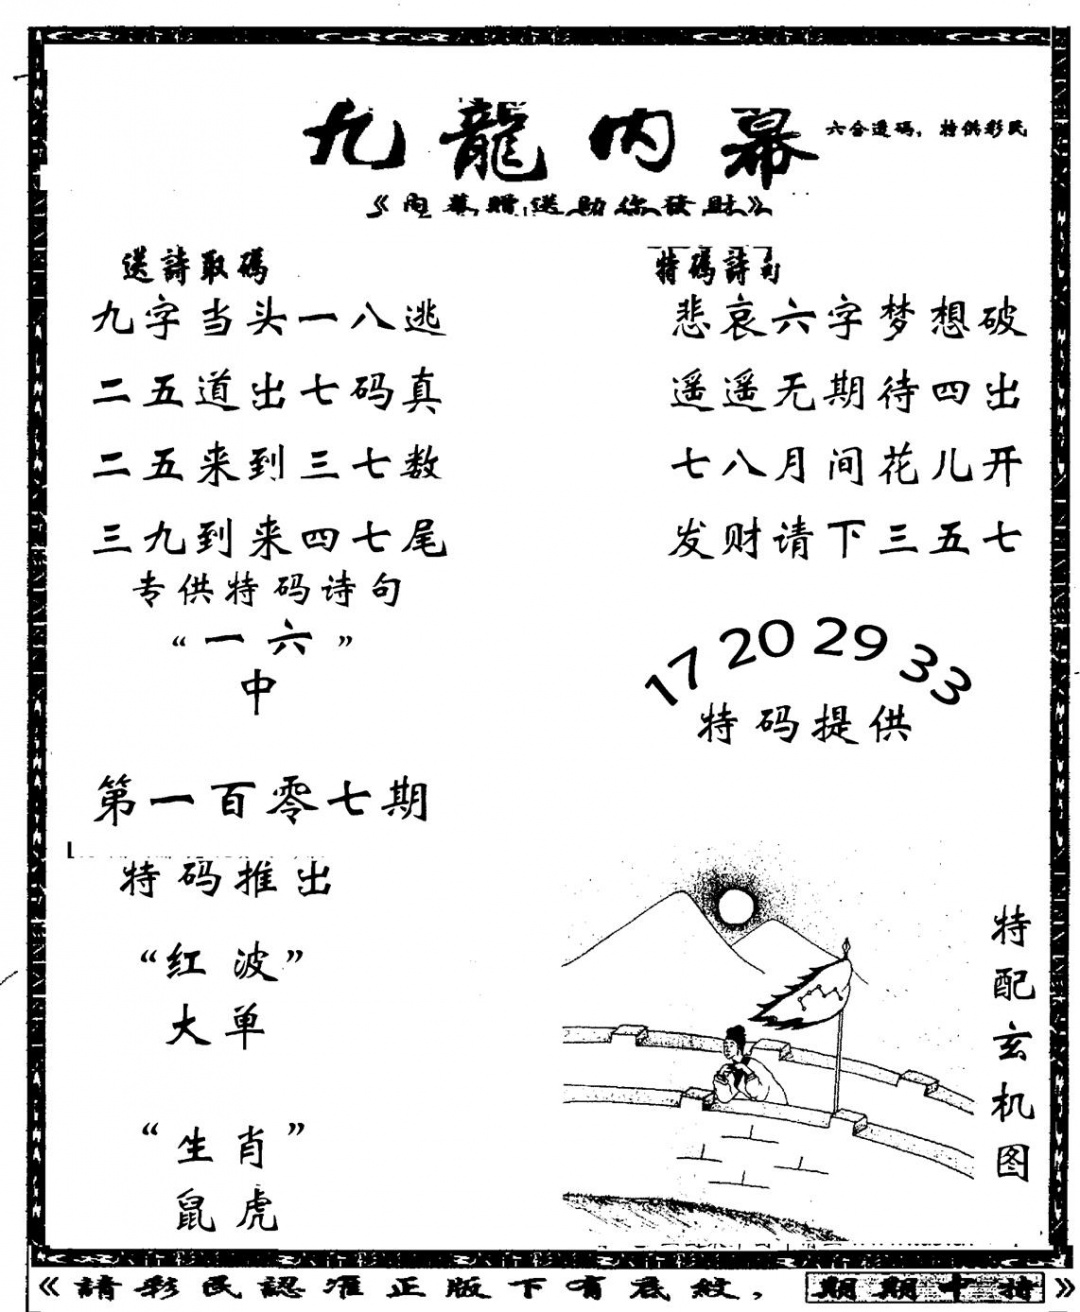 九龍内幕
六合透码，特供彩民
《内幕赠送助你发财》
送詩取碼
九字当头一八逃
二五道出七码真
二五来到三七数
三九到来四七尾
专供特码诗句
“一六”
中
第一百零七期
特码推出
“红波”
大单
“生肖”
鼠虎
特碼詩句
悲哀六字梦想破
遥遥无期待四出
七八月间花儿开
发财请下三五七
17 20 29 33
特码提供
特配玄机图
《請彩民認准正版下有底紋，期期中特》